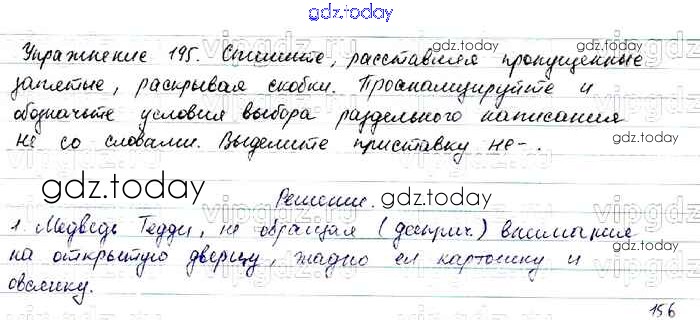 gdz.today
Упражнение 195. Спишите, расставляя пропущенные
запятые, раскрывая скобки. Проанализируйте и
обозначьте условия выбора раздельного написания
не со словами. Выделите приставку не-.
gdz.today
gdz.today
gdz.today
Решение.
gdz.today
1. Медведь Тедди, не обращая (дееприч.) внимания
на открытую дверцу, жадно ел картошку и
gdz.today
овсянку.
156